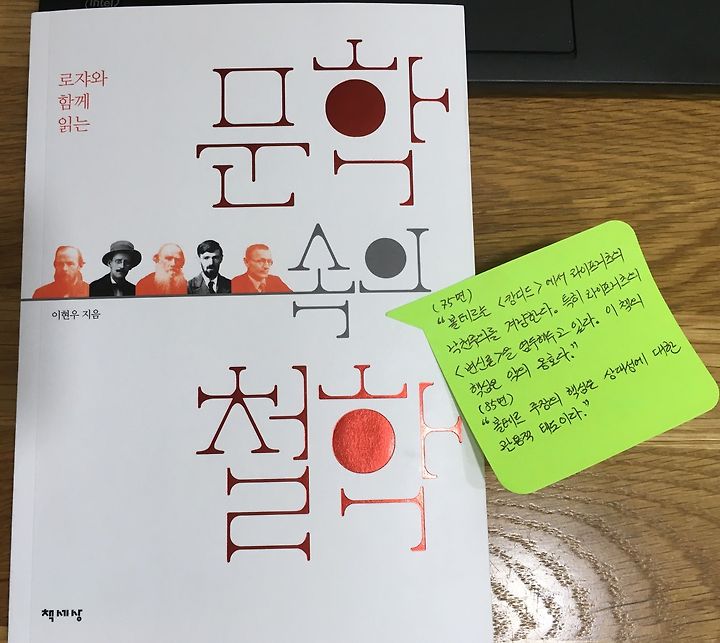 (intel)
로쟈와
함께
읽는
문학
속의
철학
이현우 지음
책세상
(75면)
“볼테르는 <캉디드>에서 라이프니츠의
낙천주의를 겨냥한다. 특히 라이프니츠의
<변신론>을 염두해두고 있다. 이 책의
핵심은 악의 옹호다.”
(85면)
“볼테르 주장의 핵심은 상대성에 대한
관용적 태도이다.”